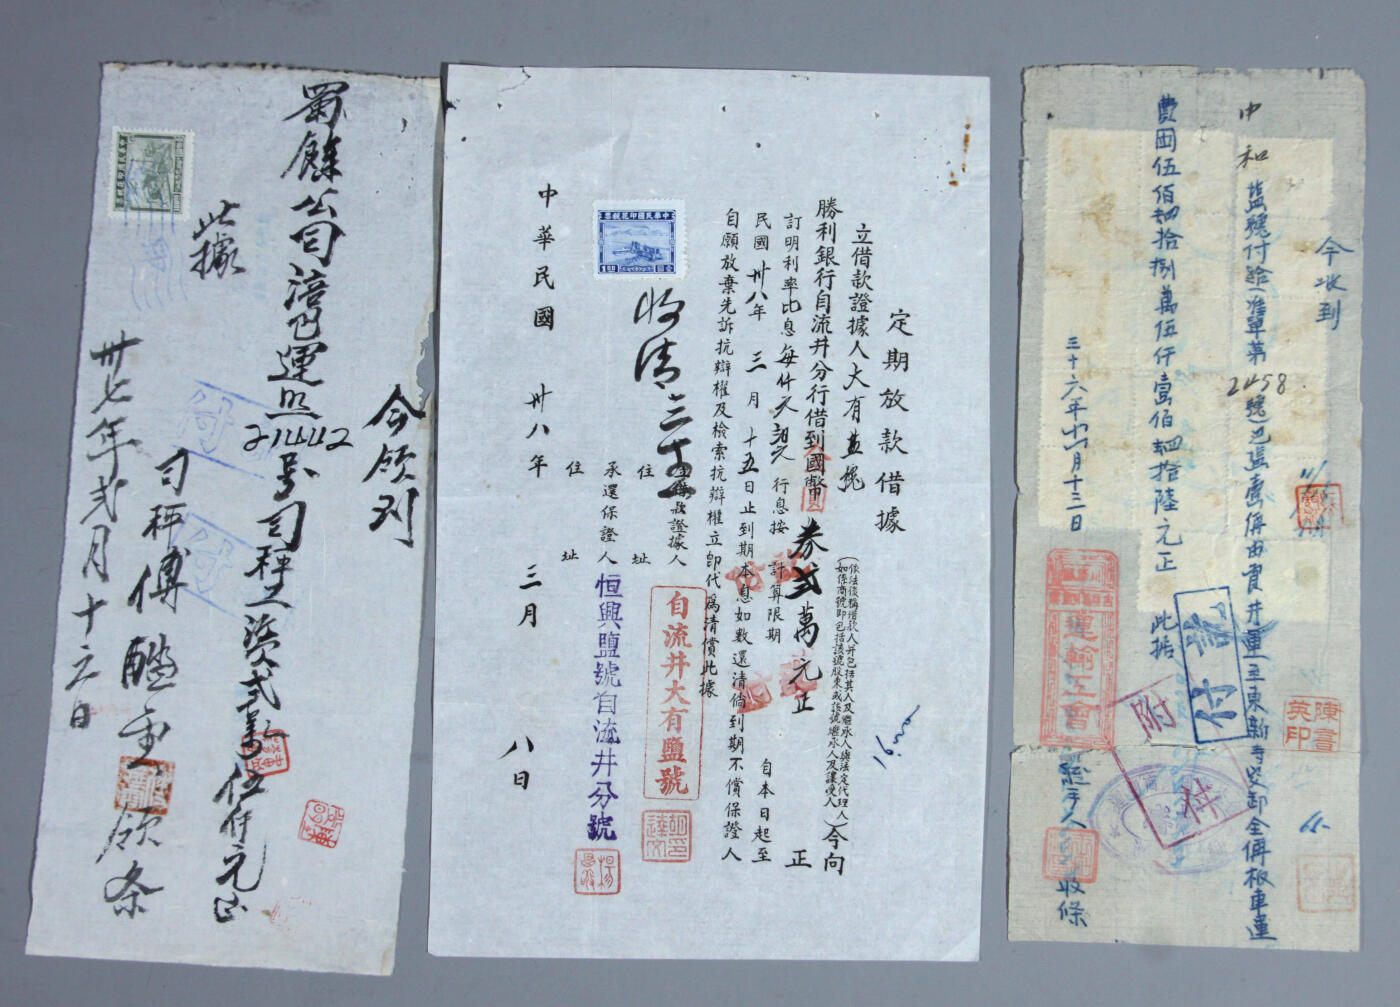 今領到
蜀餘公司涪巴運照
21442
号司秤工資弍萬伍仟元正
此據
司秤傅
領条
卅七年弍月十六日
付
付
定期放款借據
立借款證據人大有鹽號
(依法後稱借款人并包括其人及繼承人與法定代理人
如係商號即包括該號股東或該號繼承人及讓受人)今向
勝利銀行自流井分行借到國幣
券弍萬元正
正
訂明利率比息每仟元
行息按
計算限期
自本日起至
民國卅八年三月十五日止到期本息如數還清倘到期不償保證人
自願放棄先訴抗辯權及檢索抗辯權立卽代爲清償此據
中華民國印花稅票
收清
立借款證據人
自流井大有鹽號
住
址
承還保證人
恒興鹽號自流井分號
住
址
中華民國卅八年三月八日
今收到
中和
塩號付給(准單第
2458
號)巴塩壹儎由貢井運至東新寺交卸全儎板車運
費國伍佰捌拾捌萬伍仟壹佰捌拾陸元正
此据
三十六年十一月十三日
運輸工會
經手人
收條
附
件
付訖
陳書
英印